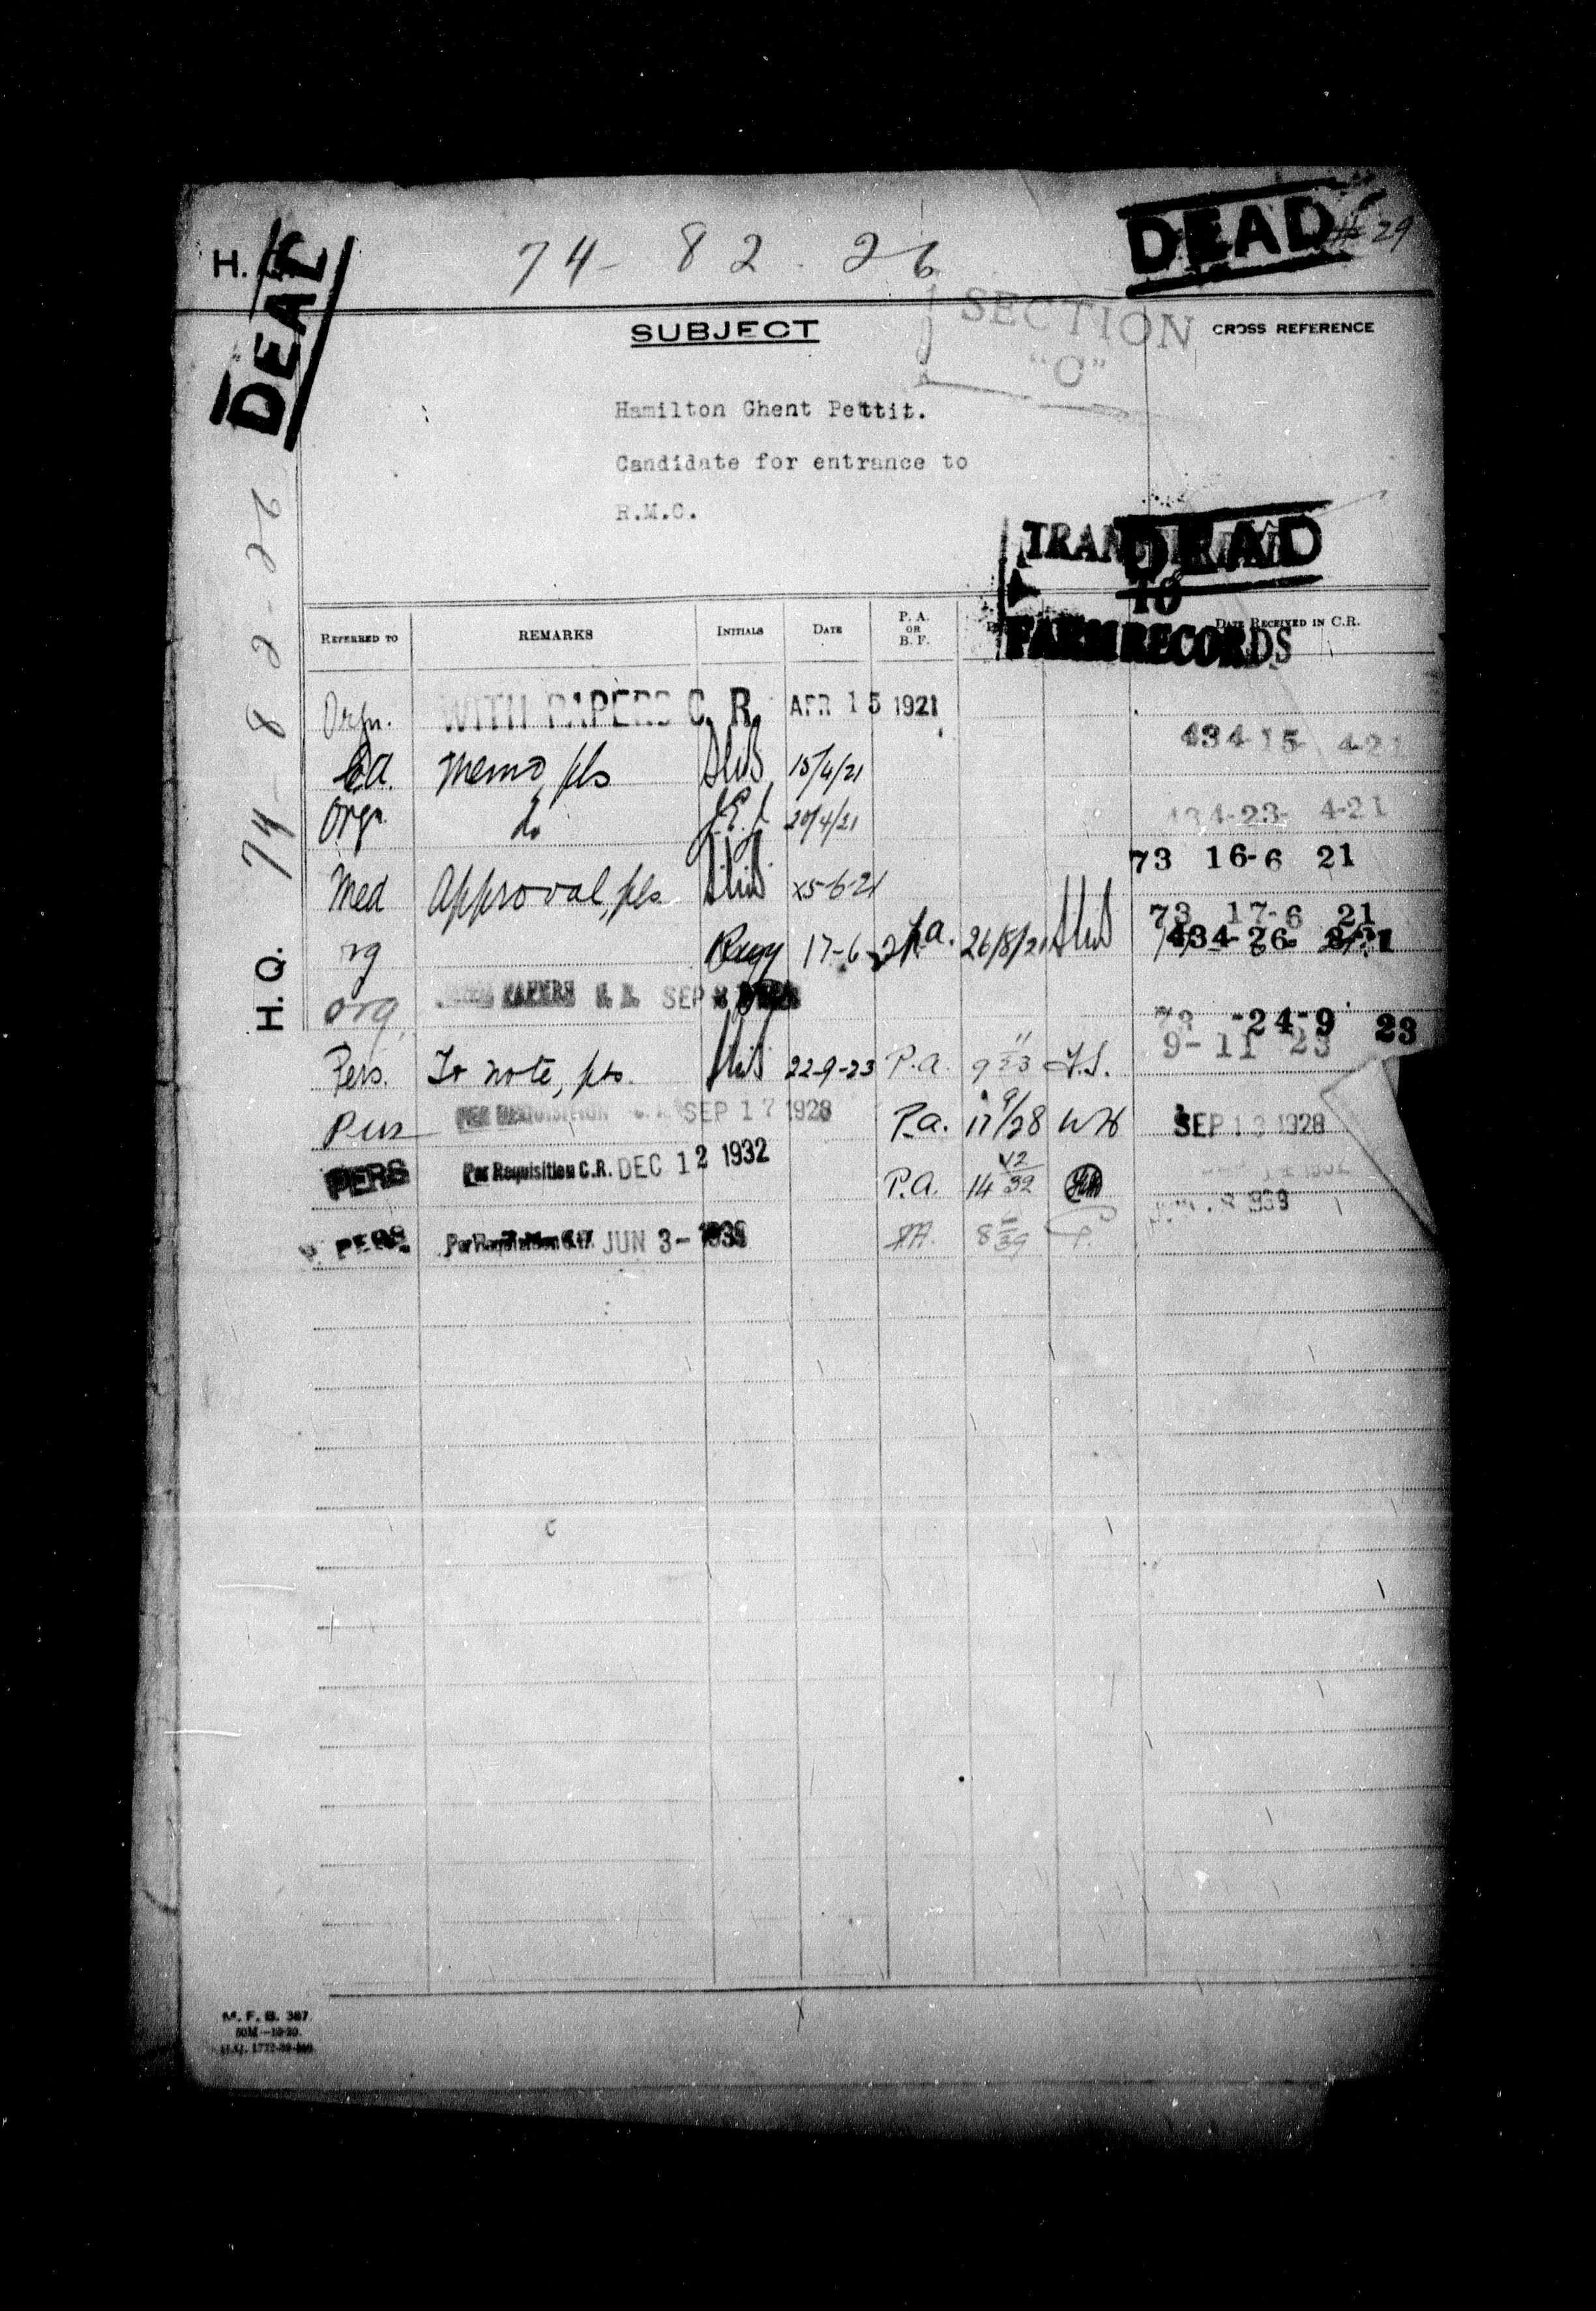 H.
74-82.26
DEAD
29
DEAD
SECTION
"C"
SUBJECT
CROSS REFERENCE
Hamilton Ghent Pettit.
Candidate for entrance to
R.M.C.
DEAD
TO
RECORDS
REFERRED TO REMARKS INITIALS DATE P. A. OR B. F. DATE RECEIVED IN C.R.
Orgn. WITH PAPERS C. R. APR 15 1921
434-15- 4-21
Ed. Memo pls 15/4/21
Orgn do J.E.J. 20/4/21
434-23- 4-21
73 16-6 21
Med Approval, pls 15-6-21
73 17-6 21
rg 17-6-21 P.a. 26/8/21
434-26-
org PAPERS SEP
73 -24-9 23
9-11 23
Pers. To note, pls. 22-9-23 P.a. 9 11/23
Pers SEP 17 1928 P.a. 17 9/28
SEP 1928
PERS Per Requisition C.R. DEC 12 1932 P.A. 14 12/32
PERS JUN 3- 1939 P.A. 8 6/39
74-82-26
H.Q.
M. F. B. 387
50M-10-20.
H.Q. 1772-39-